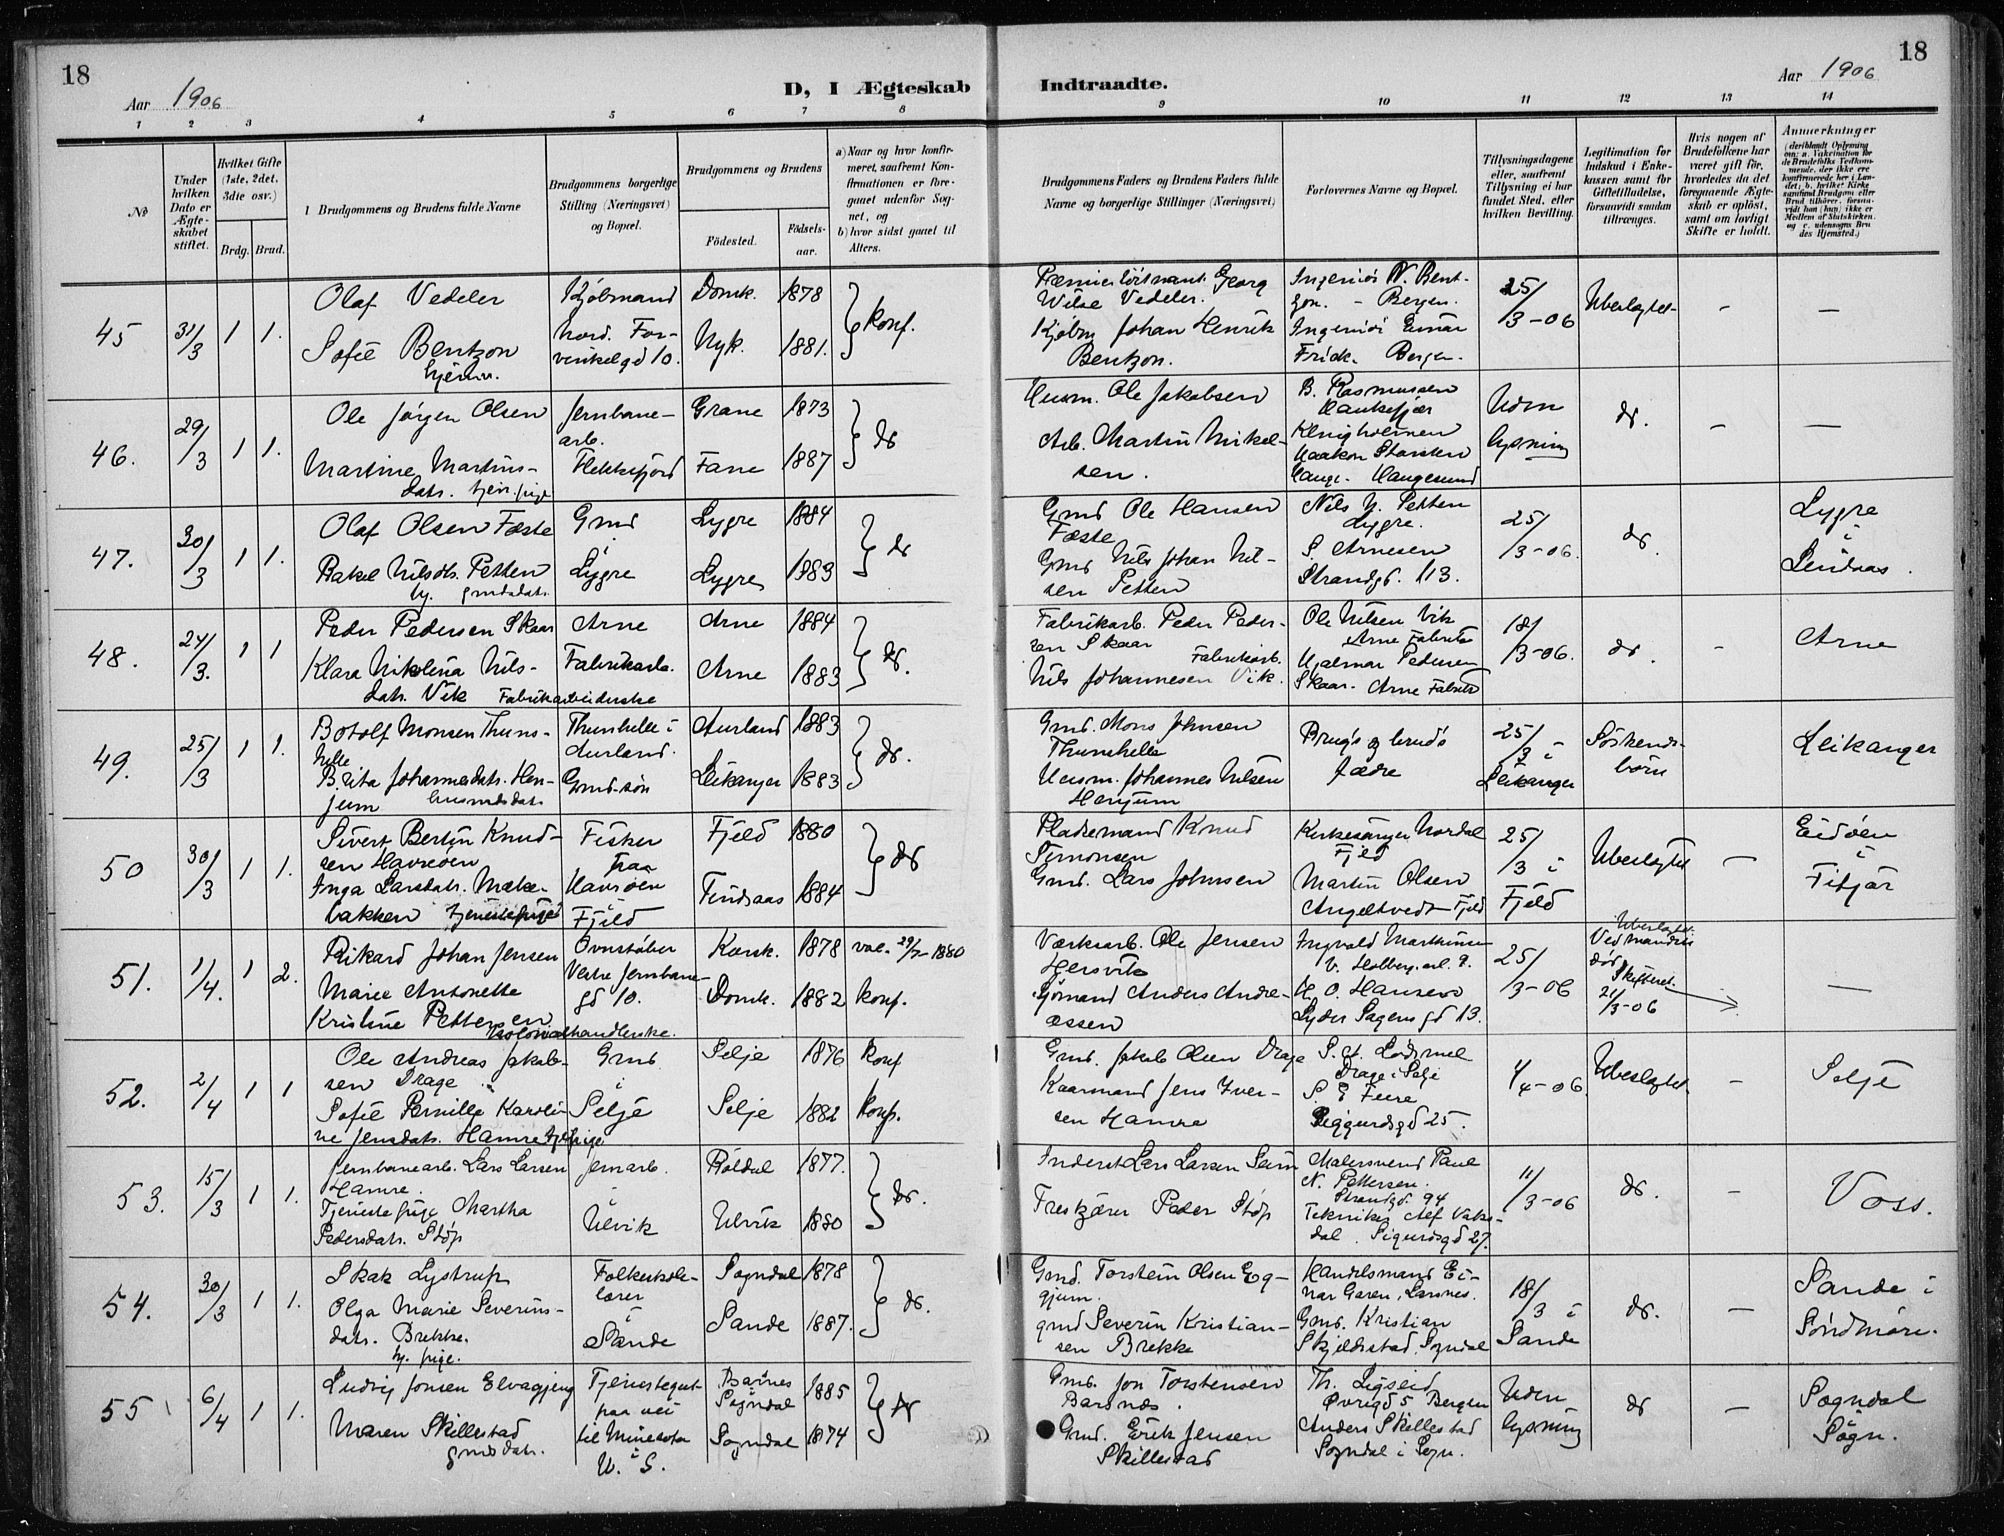 18
Aar 1906
D, I Ægteskab
Indtraadte.
Aar 1906
18
1 2 3 4 5 6 7 8 9 10 11 12 13 14
№
Under hvilken Dato er Ægteskabet stiftet.
Hvilket Gifte (1ste, 2det, 3die osv.)
Brdg. Brud.
1 Brudgommens og Brudens fulde Navne
Brudgommens borgerlige Stilling (Næringsvei) og Bopæl.
Brudgommens og Brudens
Fødested.
Fødselsaar.
a) Naar og hvor konfirmeret, saafremt Konfirmationen er foregaaet udenfor Sognet, og
b) hvor sidst gaaet til Alters.
Brudgommens Faders og Brudens Faders fulde Navne og borgerlige Stillinger (Næringsvei)
Forlovernes Navne og Bopæl.
Tillysningsdagene eller, saafremt Tillysning ei har fundet Sted, efter hvilken Bevilling.
Legitimation for Indskud i Enkekassen samt for Giftetilladelse, forsaavidt saadan tiltrænges.
Hvis nogen af Brudefolkene har været gift før, hvorledes da det foregaaende Ægteskab er opløst, samt om lovligt Skifte er holdt.
Anmerkninger
45 31/3 1 1.
Olaf Vedeler
Sofie Bentzon
hjemv.
Kjøbmand
10.
Domk. 1878
Nyk. 1881.
konf.
Premierløitnant Georg
Wilse Vedeler.
Kjøbm Johan Henrik
Bentzon.
Ingeniør N. Bentzon. - Bergen.
Ingeniør Einar
Frick. Bergen.
25/3-06
Ubeslægtet
-
-
46. 29/3 1 1.
Ole Jørgen Olsen
Martine Martinsdatr. tjen.pige
Jernbanearb.
Flekkefjord
Grane 1873
Fane 1887
do
Husm. Ole Jakobsen
Arb. Martin Mikelsen.
B. Rasmussen
Haakon
Haugesund
Uden
lysning
do.
-
-
47. 30/3 1 1.
Olaf Olsen Fæste
Rakel Nilsdtr. Petten
tj. gmdsdatr.
Gmd
Lygre
Lygre 1884
Lygre 1883
do
Gmd Ole Hansen
Fæste
Gmd Nils Johan Nilsen Petten
Nils N. Petten
Lygre.
S. Arnesen
Strandgd. 113.
25/3-06.
do.
Lygre
i
Lindaas.
48. 24/3. 1 1
Peder Pedersen Skaar
Klara Nikolina Nilsdatr. Vik Fabrikarbeiderske
Arne
Fabrikarb.
Arne 1884
Arne 1883
do.
Fabrikarb. Peder Pedersen Skaar
Fabrikarb.
Nils Johannesen Vik.
Ole Nilsen Vik
Arne Fabrik
Hjalmar Pedersen
Skaar. Arne Fabrik
18/3-06.
do.
-
Arne
49. 25/3 1 1.
Botolf Monsen Thunshelle
Brita Johannesdatr. Henjum husmdsdatr.
Thunhelle i
Aurland.
Gmd.søn
Aurland 1883
Leikanger 1883
do.
Gmd. Mons Johnsen
Thunshelle
Husm. Johannes Nilsen
Henjum
Brugs og bruds
fædre
25/3 i
Leikanger
Søskendebørn
Leikanger
50 30/3 1 1.
Sivert Bertin Knudsen Havreøen
Inga Larsdatr. Møkebakken tjenestepige
Fisker
fra
Havrøen
i
Fjeld
Fjeld 1880
Findaas 1884
do
Pladsemand Knud
Simonsen
Gmd. Lars Johnsen
Kirkesanger Nordal
Fjeld
Martin Olsen
Angeltvedt Fjeld
25/3 i
Fjeld
Ubeslægtet
-
Eidøen
i
Fitjar
51. 1/4. 1 2.
Rikard Johan Jensen
Marie Antonette
Kristine Pettersen
Kolonialhandlerske.
Ovnstøber
Vestre Jernbanegd 10.
Korsk. 1878
Domk. 1882
vac. 29/7-1880
konf.
Værksarb. Ole Jensen
Hersvik
Sjømand Anders Andreassen
Ingvald Martinsen
V. Holberg.al. 9.
H. O. Hansen
Lyder Sagens gd 13.
25/3-06
Ubeslægtet.
Ved mandens
død
Skiftet.
21/3-06
-
52. 2/4 1 1
Ole Andreas Jakobsen Drage
Sofie Pernille Karoline Jensdatr. Hamre tj.pige
Gmd.
i
Selje
Selje 1876
Selje 1882
konf
konf.
Gmd. Jakob Olsen Drage
Kaarmand Jens Iversen Hamre
Drage i Selje
25.
4/4-06
Ubeslægtet.
-
Selje
53. 15/3 1 1.
Jernbanearb. Lars Larsen
Hamre.
Tjenestepige Martha
Pedersdatr. Støp
Jernarb.
i
Ulvik
Røldal 1877.
Ulvik 1880
do.
Inderst Lars Larsen Seim
Peder Støp
Malersvend Paul
N. Pettersen.
Strandgd. 94
Tekniker Alf Vaksdal. Sigurdsgd 27.
11/3-06
do.
-
Voss.
54. 30/3 1 1.
Skak Lystrup
Olga Marie Severinsdatr. Brekke.
tj. pige.
Folkeskolelærer
i
Sande
Sogndal 1878
Sande 1887.
do.
Gmd. Torstein Olsen Eggjum.
gmd Severin Kristiansen Brekke
Handelsmand Einar Garen, Larsnes.
Gmd. Kristian
Skjeldestad. Sogndal
18/3 i
Sande
do.
-
Sande i
Søndmøre.
55 6/4 1 1.
Ludvig Jonsen Elvagjeng
Maren Skillestad
gmdsdatr.
Tjenestegut
paa vei
til Minesota
i
U. S.
Barnes
Sogndal 1885
Sogndal 1874
do
Gmd. Jon Torstensen
Barsnes.
Gmd. Erik Jensen
Skillestad
Th. Ligseid
Øvregd 5 Bergen
Anders Skillestad
Sogndal i Sogn.
Uden
lysning
do
-
Sogndal
Sogn.